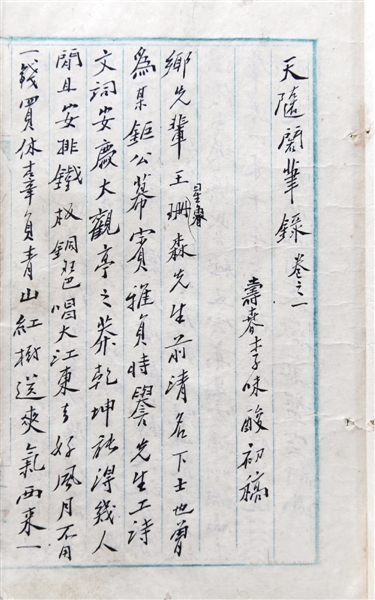 天隨閣筆錄 卷之一
壽春李味酸初稿
鄉先輩王珊森(星魯)先生前清名下士也曾
為某鉅公幕賓雅負時譽先生工詩
文詞安慶大觀亭之莽乾坤能得幾人
閒且安排鐵板銅琶唱大江東去好風月不用
一錢買休辜負青山紅樹送爽氣西來一